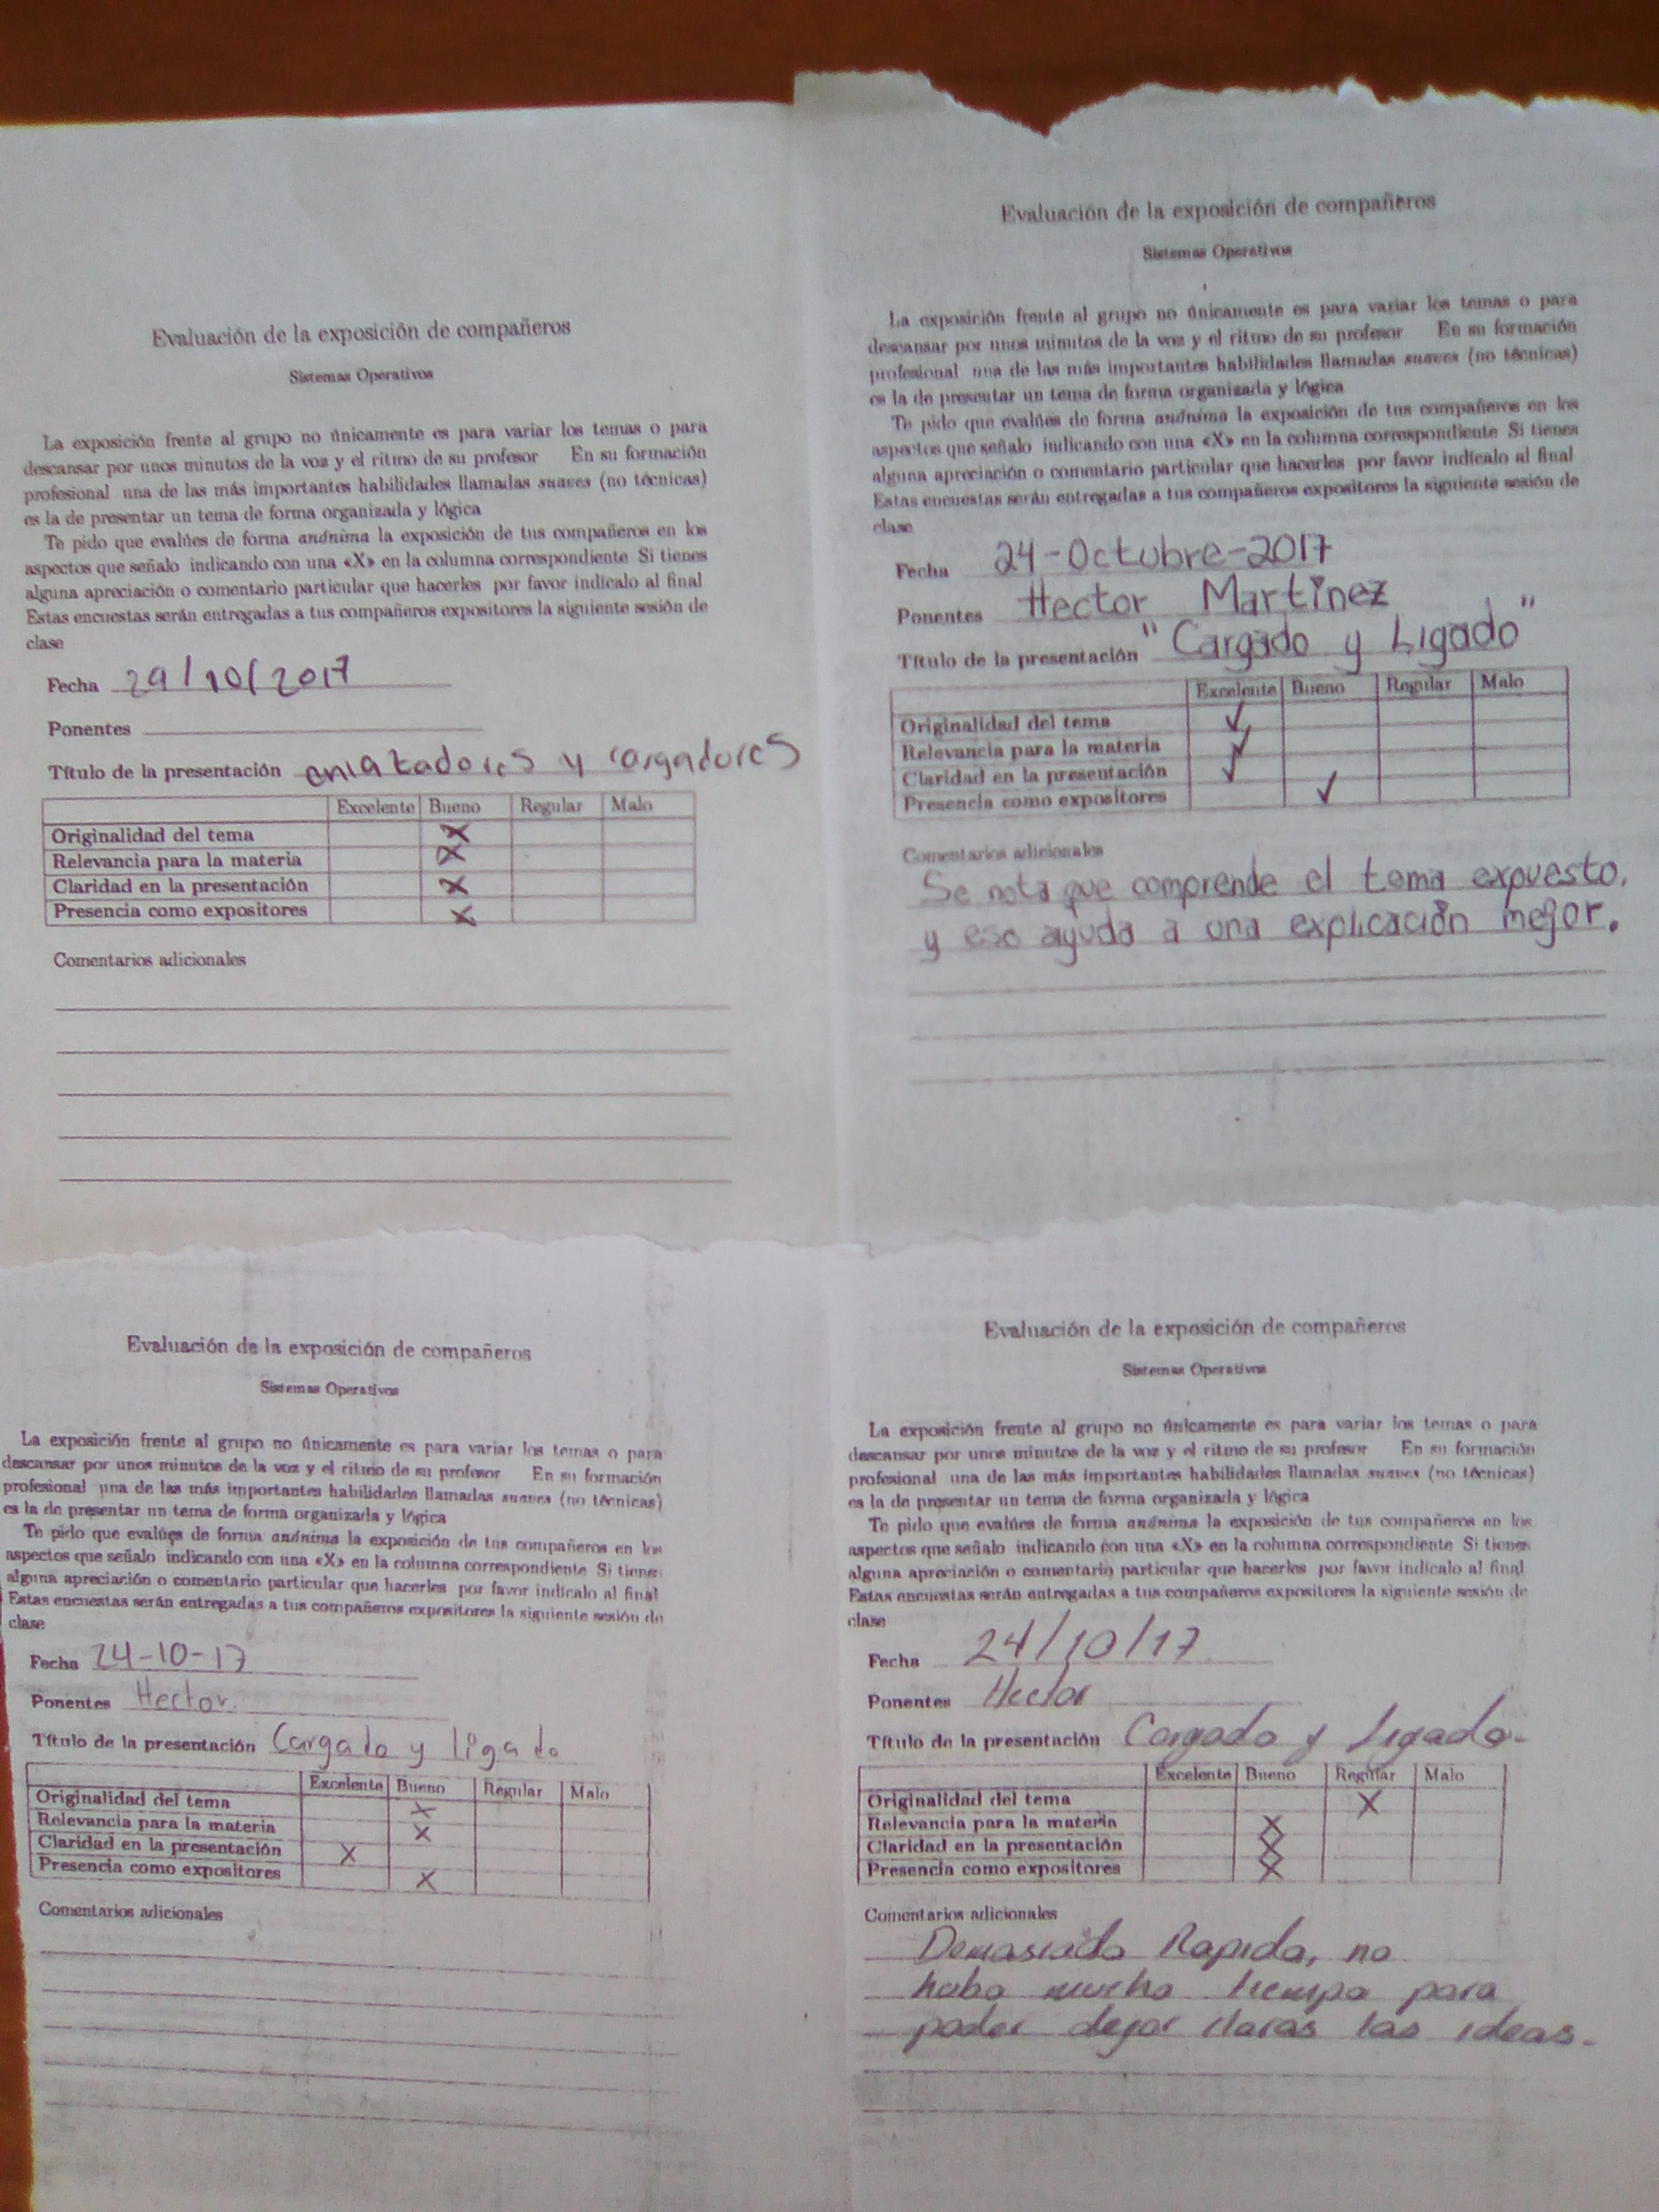 Evaluación de la exposición de compañeros
Sistemas Operativos
La exposición frente al grupo no únicamente es para variar los temas o para
descansar por unos minutos de la voz y el ritmo de su profesor En su formación
profesional una de las más importantes habilidades llamadas suaves (no técnicas)
es la de presentar un tema de forma organizada y lógica
Te pido que evalúes de forma anónima la exposición de tus compañeros en los
aspectos que señalo indicando con una «X» en la columna correspondiente Si tienes
alguna apreciación o comentario particular que hacerles por favor indícalo al final
Estas encuestas serán entregadas a tus compañeros expositores la siguiente sesión de
clase
Fecha 24/10/2017
Ponentes
Título de la presentación enlazadores y cargadores
Excelente Bueno Regular Malo
Originalidad del tema X
Relevancia para la materia X
Claridad en la presentación X
Presencia como expositores X
Comentarios adicionales
Evaluación de la exposición de compañeros
Sistemas Operativos
La exposición frente al grupo no únicamente es para variar los temas o para
descansar por unos minutos de la voz y el ritmo de su profesor En su formación
profesional una de las más importantes habilidades llamadas suaves (no técnicas)
es la de presentar un tema de forma organizada y lógica
Te pido que evalúes de forma anónima la exposición de tus compañeros en los
aspectos que señalo indicando con una «X» en la columna correspondiente Si tienes
alguna apreciación o comentario particular que hacerles por favor indícalo al final
Estas encuestas serán entregadas a tus compañeros expositores la siguiente sesión de
clase
Fecha 24-Octubre-2017
Ponentes Hector Martinez
Título de la presentación "Cargado y Ligado"
Excelente Bueno Regular Malo
Originalidad del tema ✓
Relevancia para la materia ✓
Claridad en la presentación ✓
Presencia como expositores ✓
Comentarios adicionales
Se nota que comprende el tema expuesto,
y eso ayuda a una explicación mejor.
Evaluación de la exposición de compañeros
Sistemas Operativos
La exposición frente al grupo no únicamente es para variar los temas o para
descansar por unos minutos de la voz y el ritmo de su profesor En su formación
profesional una de las más importantes habilidades llamadas suaves (no técnicas)
es la de presentar un tema de forma organizada y lógica
Te pido que evalúes de forma anónima la exposición de tus compañeros en los
aspectos que señalo indicando con una «X» en la columna correspondiente Si tienes
alguna apreciación o comentario particular que hacerles por favor indícalo al final
Estas encuestas serán entregadas a tus compañeros expositores la siguiente sesión de
clase
Fecha 24-10-17
Ponentes Hector.
Título de la presentación Cargado y ligado
Excelente Bueno Regular Malo
Originalidad del tema X
Relevancia para la materia X
Claridad en la presentación X
Presencia como expositores X
Comentarios adicionales
Evaluación de la exposición de compañeros
Sistemas Operativos
La exposición frente al grupo no únicamente es para variar los temas o para
descansar por unos minutos de la voz y el ritmo de su profesor En su formación
profesional una de las más importantes habilidades llamadas suaves (no técnicas)
es la de presentar un tema de forma organizada y lógica
Te pido que evalúes de forma anónima la exposición de tus compañeros en los
aspectos que señalo indicando con una «X» en la columna correspondiente Si tienes
alguna apreciación o comentario particular que hacerles por favor indícalo al final
Estas encuestas serán entregadas a tus compañeros expositores la siguiente sesión de
clase
Fecha 24/10/17
Ponentes Hector
Título de la presentación Cargado y Ligado.
Excelente Bueno Regular Malo
Originalidad del tema X
Relevancia para la materia X
Claridad en la presentación X
Presencia como expositores X
Comentarios adicionales
Demasiado Rapida, no
hubo mucho tiempo para
poder dejar claras las ideas.